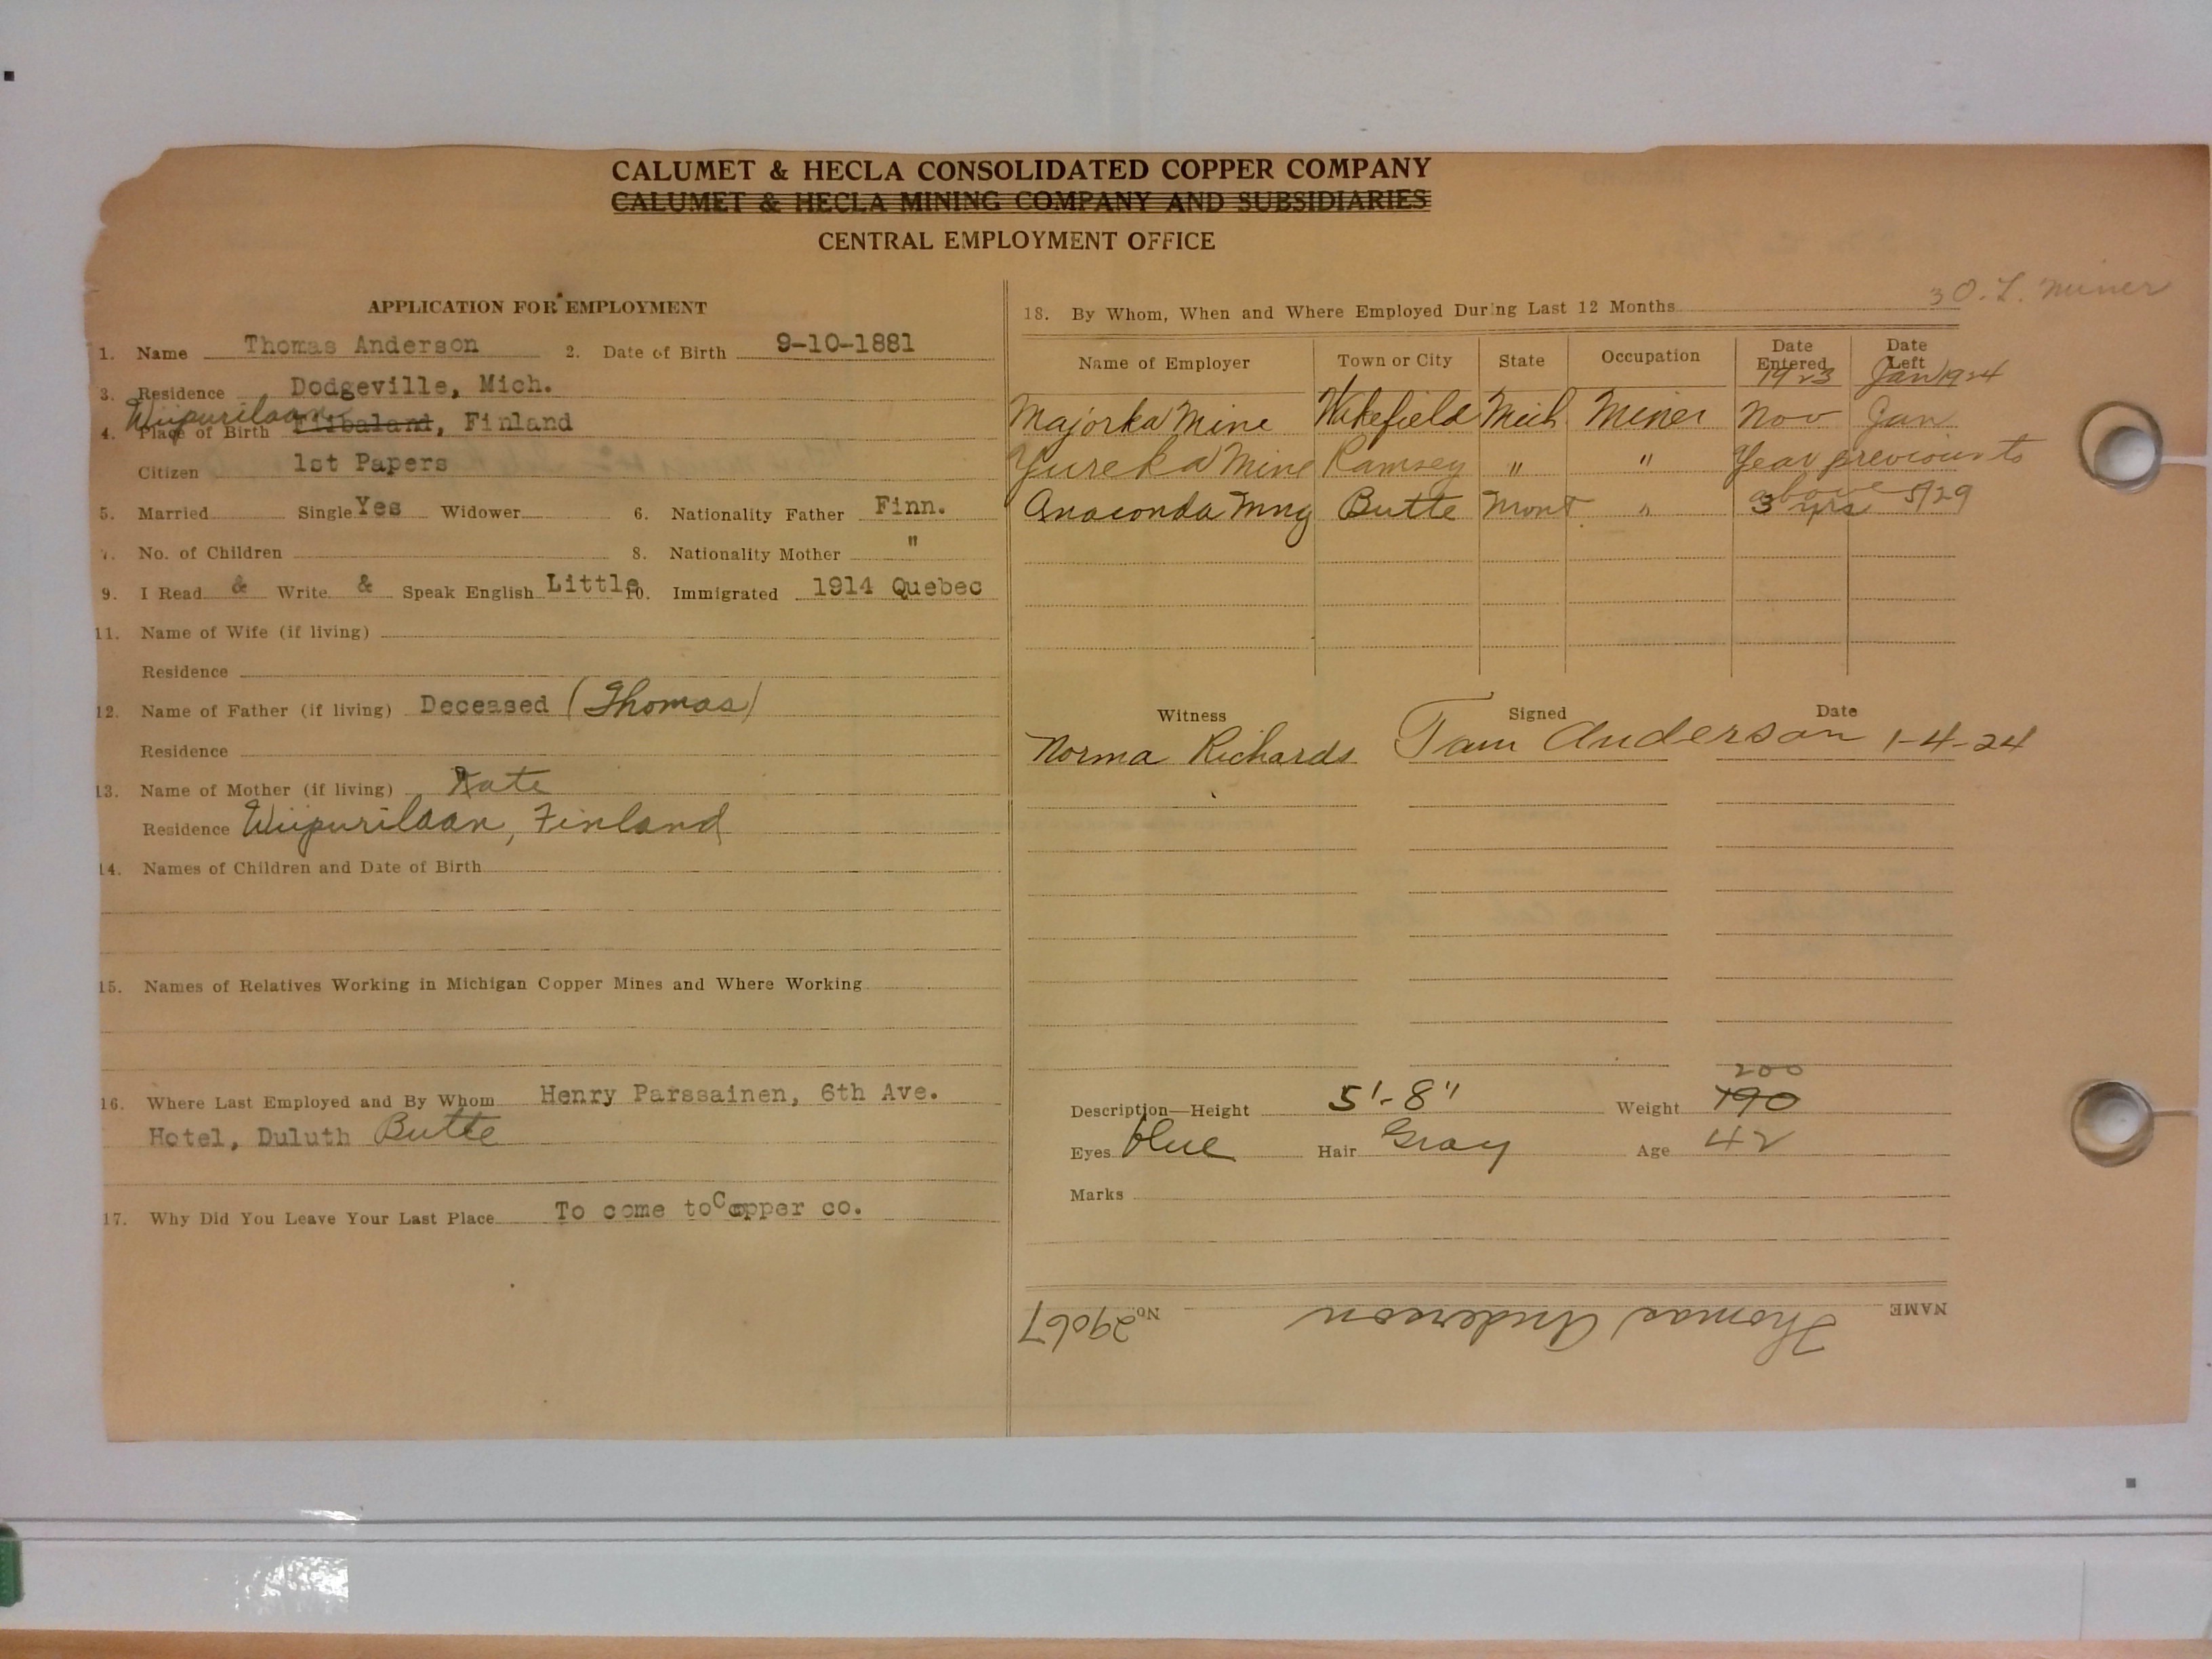 CALUMET & HECLA CONSOLIDATED COPPER COMPANY
CALUMET & HECLA MINING COMPANY AND SUBSIDIARIES
CENTRAL EMPLOYMENT OFFICE
APPLICATION FOR EMPLOYMENT
1. Name Thomas Anderson 2. Date of Birth 9-10-1881
3. Residence Dodgeville, Mich.
Wiipurilaan
4. Place of Birth , Finland
Citizen 1st Papers
5. Married Single Yes Widower 6. Nationality Father Finn.
7. No. of Children 8. Nationality Mother "
9. I Read & Write & Speak English Little 10. Immigrated 1914 Quebec
11. Name of Wife (if living)
Residence
12. Name of Father (if living) Deceased (Thomas)
Residence
13. Name of Mother (if living) Kate
Residence Wiipurilaan, Finland
14. Names of Children and Date of Birth
15. Names of Relatives Working in Michigan Copper Mines and Where Working
16. Where Last Employed and By Whom Henry Parssainen, 6th Ave.
Hotel, Duluth Butte
17. Why Did You Leave Your Last Place To come to Copper co.
30. T. Miner
18. By Whom, When and Where Employed During Last 12 Months
Name of Employer Town or City State Occupation Date Entered Date Left
1923 Jan 1924
Majorka Mine Wakefield Mich Miner Nov Jan
Yureka Mine Ramsey " " Year previous to
above
Anaconda Mng Butte Mont. " 3 yrs 5/29
Witness Signed Date
Norma Richards Tom Anderson 1-4-24
200
Description—Height 5'-8" Weight 190
Eyes blue Hair Gray Age 42
Marks
NAME Thomas Anderson No. 29067